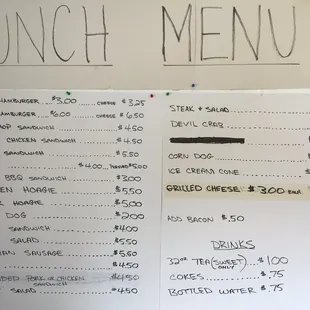 UNCH MENU
HAMBURGER ..... $3.00 ..... CHEESE $3.25
HAMBURGER ..... $6.00 ..... CHEESE $6.50
OP SANDWICH ..... $4.50
CHICKEN SANDWICH ..... $4.50
SANDWICH ..... $5.50
..... $4.00 ..... $5.00
BBQ SANDWICH ..... $3.00
EN HOAGIE ..... $5.50
R HOAGIE ..... $5.00
DOG ..... $2.00
SANDWICH ..... $4.00
SALAD ..... $5.50
IAN SAUSAGE ..... $5.50
..... $4.00
DED PORK OR CHICKEN SANDWICH ..... $4.50
SALAD ..... $4.50
STEAK & SALAD .....
DEVIL CRAB .....
CORN DOG .....
ICE CREAM CONE .....
GRILLED CHEESE $3.00
ADD BACON $.50
DRINKS
32oz TEA (SWEET ONLY) ... $1.00
COKES ..... $.75
BOTTLED WATER $.75